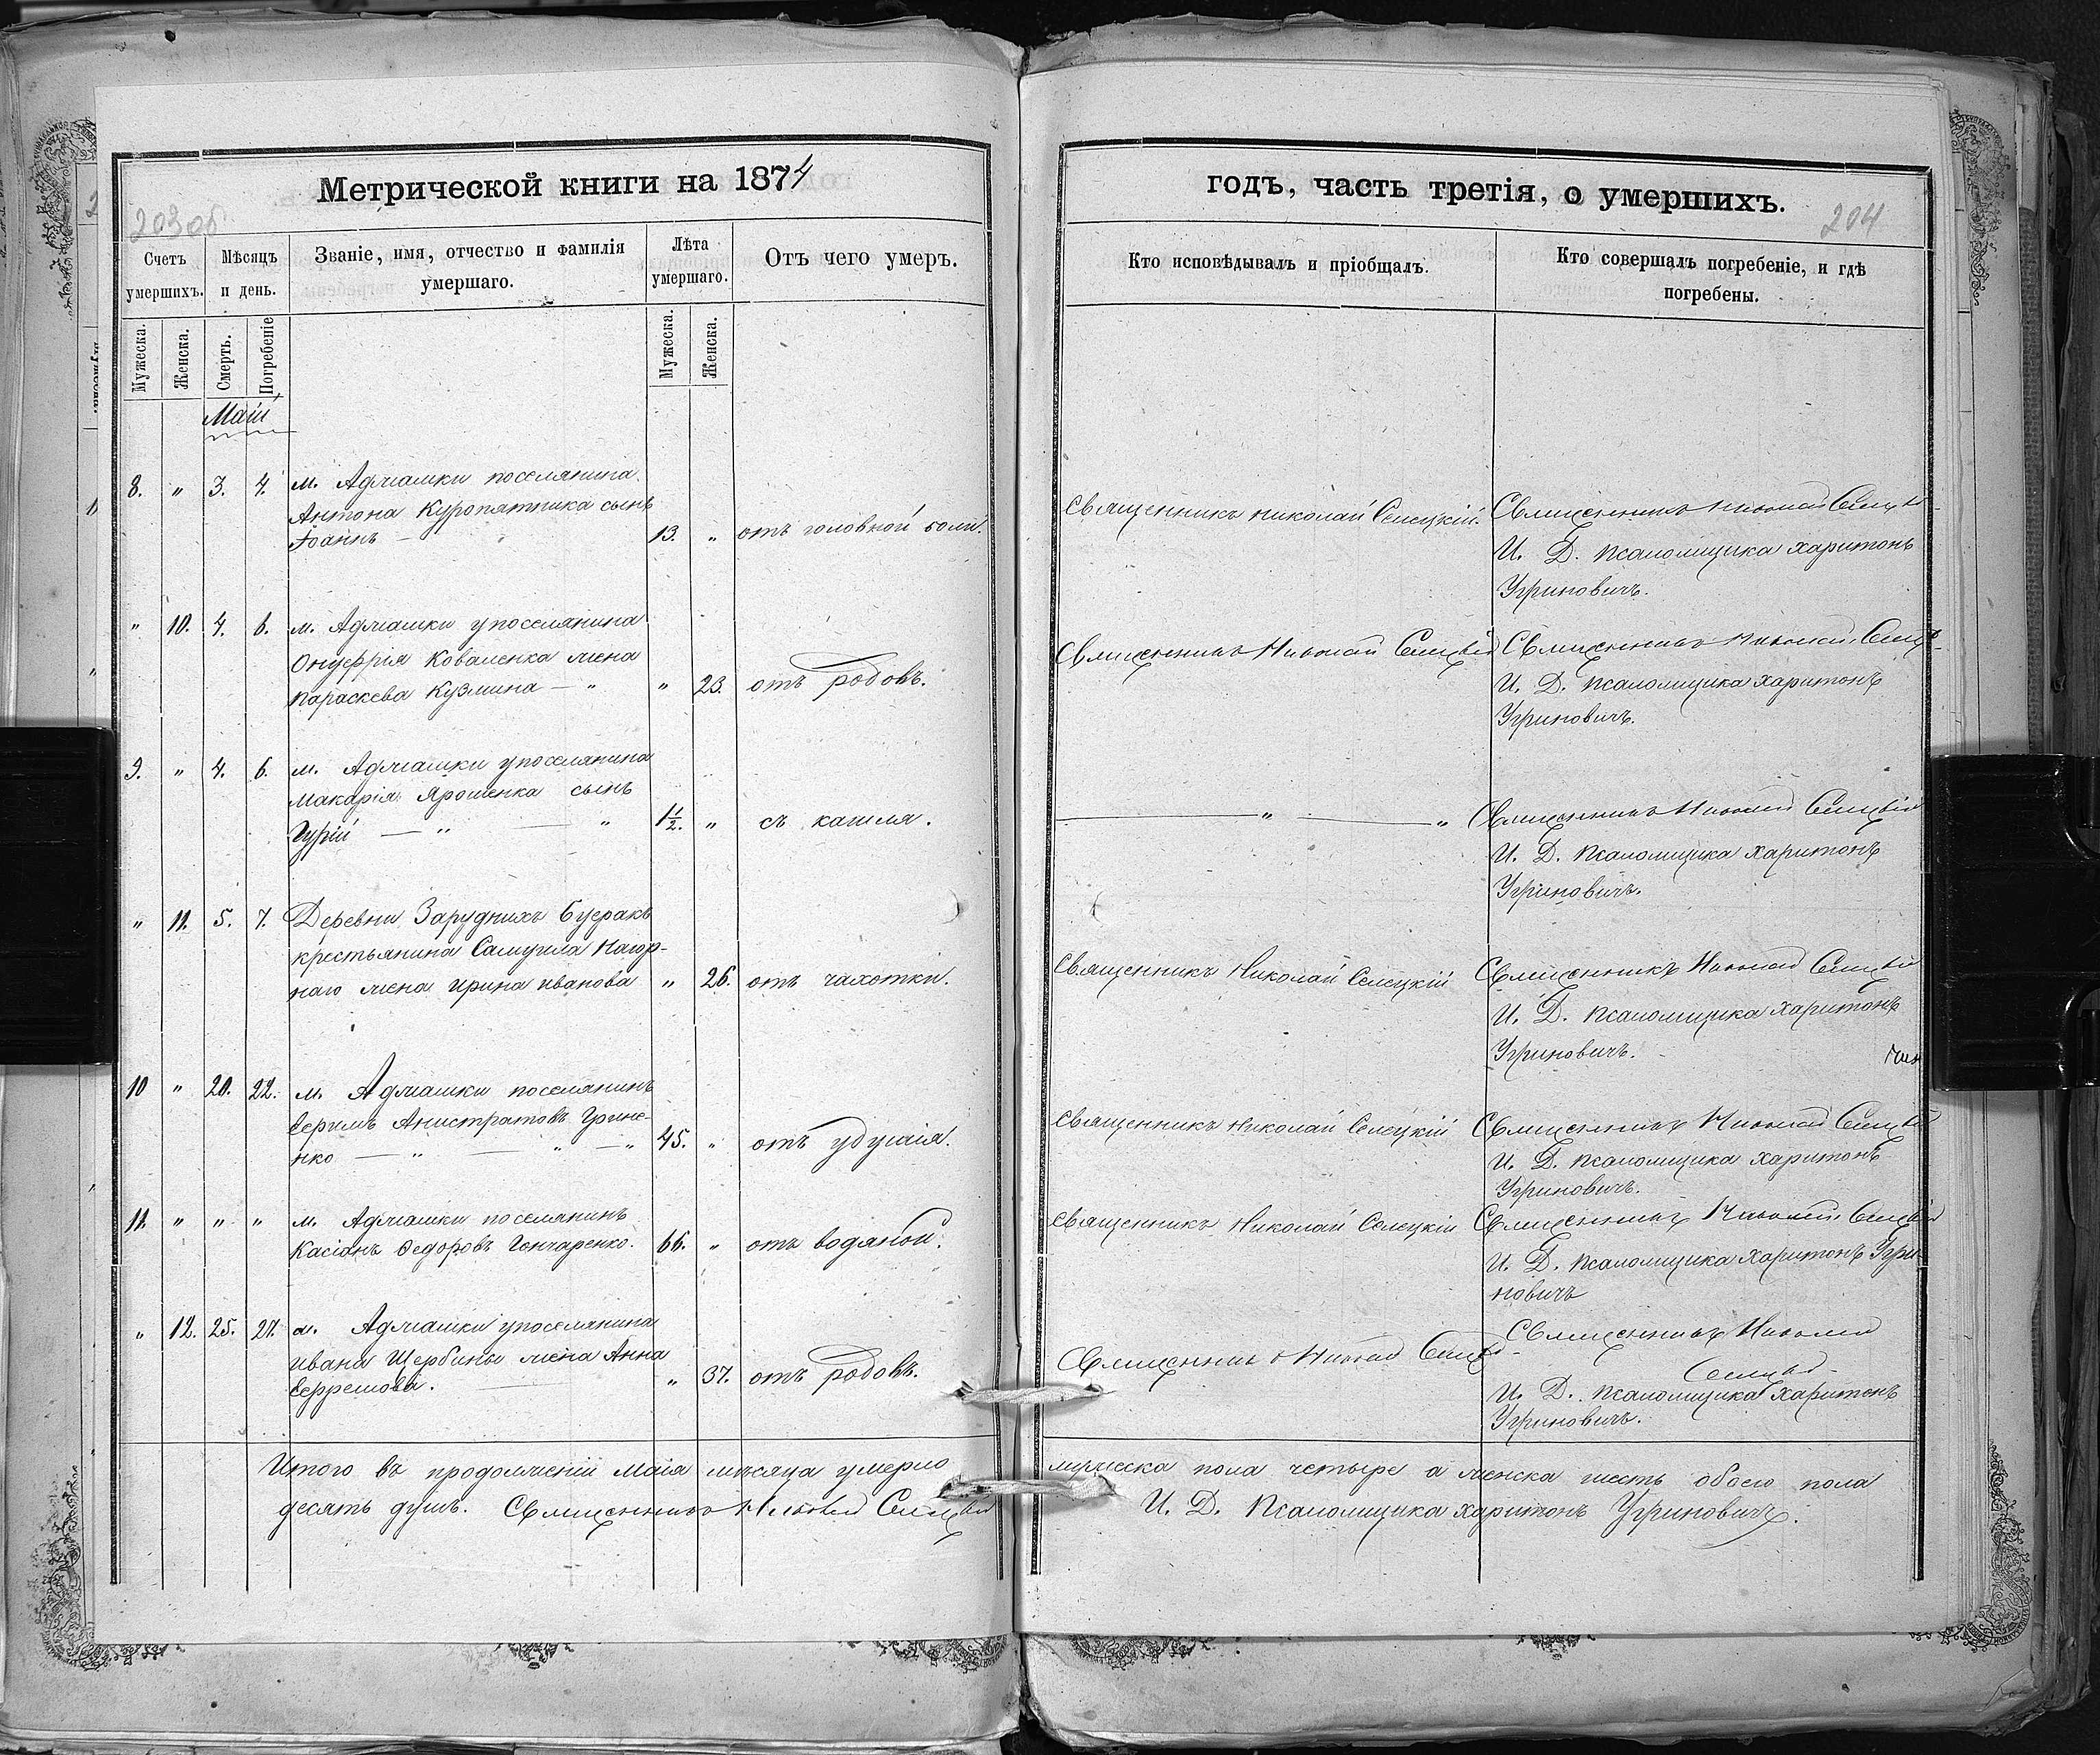 Метрической книги на 1874
203об
Счетъ умершихъ.
Мѣсяцъ и день.
Званіе, имя, отчество и фамилія умершаго.
Лѣта умершаго.
Отъ чего умеръ.
Мужеска.
Женска.
Смерть.
Погребеніе
Мужеска.
Женска.
Маій
8. " 3. 4. м. Аджамки поселянина
Антона Куропятника сынъ
Іоаннъ — 13. " отъ головной боли.
" 10. 4. 6. м. Аджамки упоселянина
Онуфрія Коваленка жена
Параскева Кузмина — " " 23. отъ родовъ.
9. " 4. 6. м. Аджамки упоселянина
Макарія Ярошенка сынъ
Гурій — " — " 1½. " съ кашля.
" 11. 5. 7. Деревни Заруднихъ Буеракъ
крестьянина Самуила Нагор-
наго жена Ирина Иванова " 26. отъ чахотки.
10 " 20. 22. м. Аджамки поселянинъ
Анистратовъ Грине-
нко — " — " — " 45. " отъ удушія.
11. " " " м. Аджамки поселянинъ
Касіанъ Федоровъ Гончаренко. 66. " отъ водяной.
" 12. 25. 27. м. Аджамки упоселянина
Ивана Щербины жена Анна
Ефремова. — " 37. отъ родовъ.
Итого въ продолженіи Маія мѣсяца умерло
десять душъ. Священникъ Николай Селецкій
годъ, часть третія, о умершихъ.
204
Кто исповѣдывалъ и пріобщалъ.
Кто совершалъ погребеніе, и гдѣ погребены.
Священникъ Николай Селецкій. Священникъ Николай Селецкій
И. Д. Псаломщика Харитонъ
Угриновичъ.
Священникъ Николай Селецкій Священникъ Николай Селец-
И. Д. Псаломщика Харитонъ
Угриновичъ.
— " — " Священникъ Николай Селецкій
И. Д. Псаломщика Харитонъ
Угриновичъ.
Священникъ Николай Селецкій Священникъ Николай Селецкій
И. Д. Псаломщика Харитонъ
Угриновичъ.
Священникъ Николай Селецкій Священникъ Николай Селецкій
И. Д. Псаломщика Харитонъ
Угриновичъ.
Священникъ Николай Селецкій Священникъ Николай Селецкій
И. Д. Псаломщика Харитонъ Угри-
новичъ
Священникъ Николай Селецкій Священникъ Николай
Селецкій
И. Д. Псаломщика Харитонъ
Угриновичъ.
мужеска пола четыре а женска шесть обоего пола
И. Д. Псаломщика Харитонъ Угриновичъ.